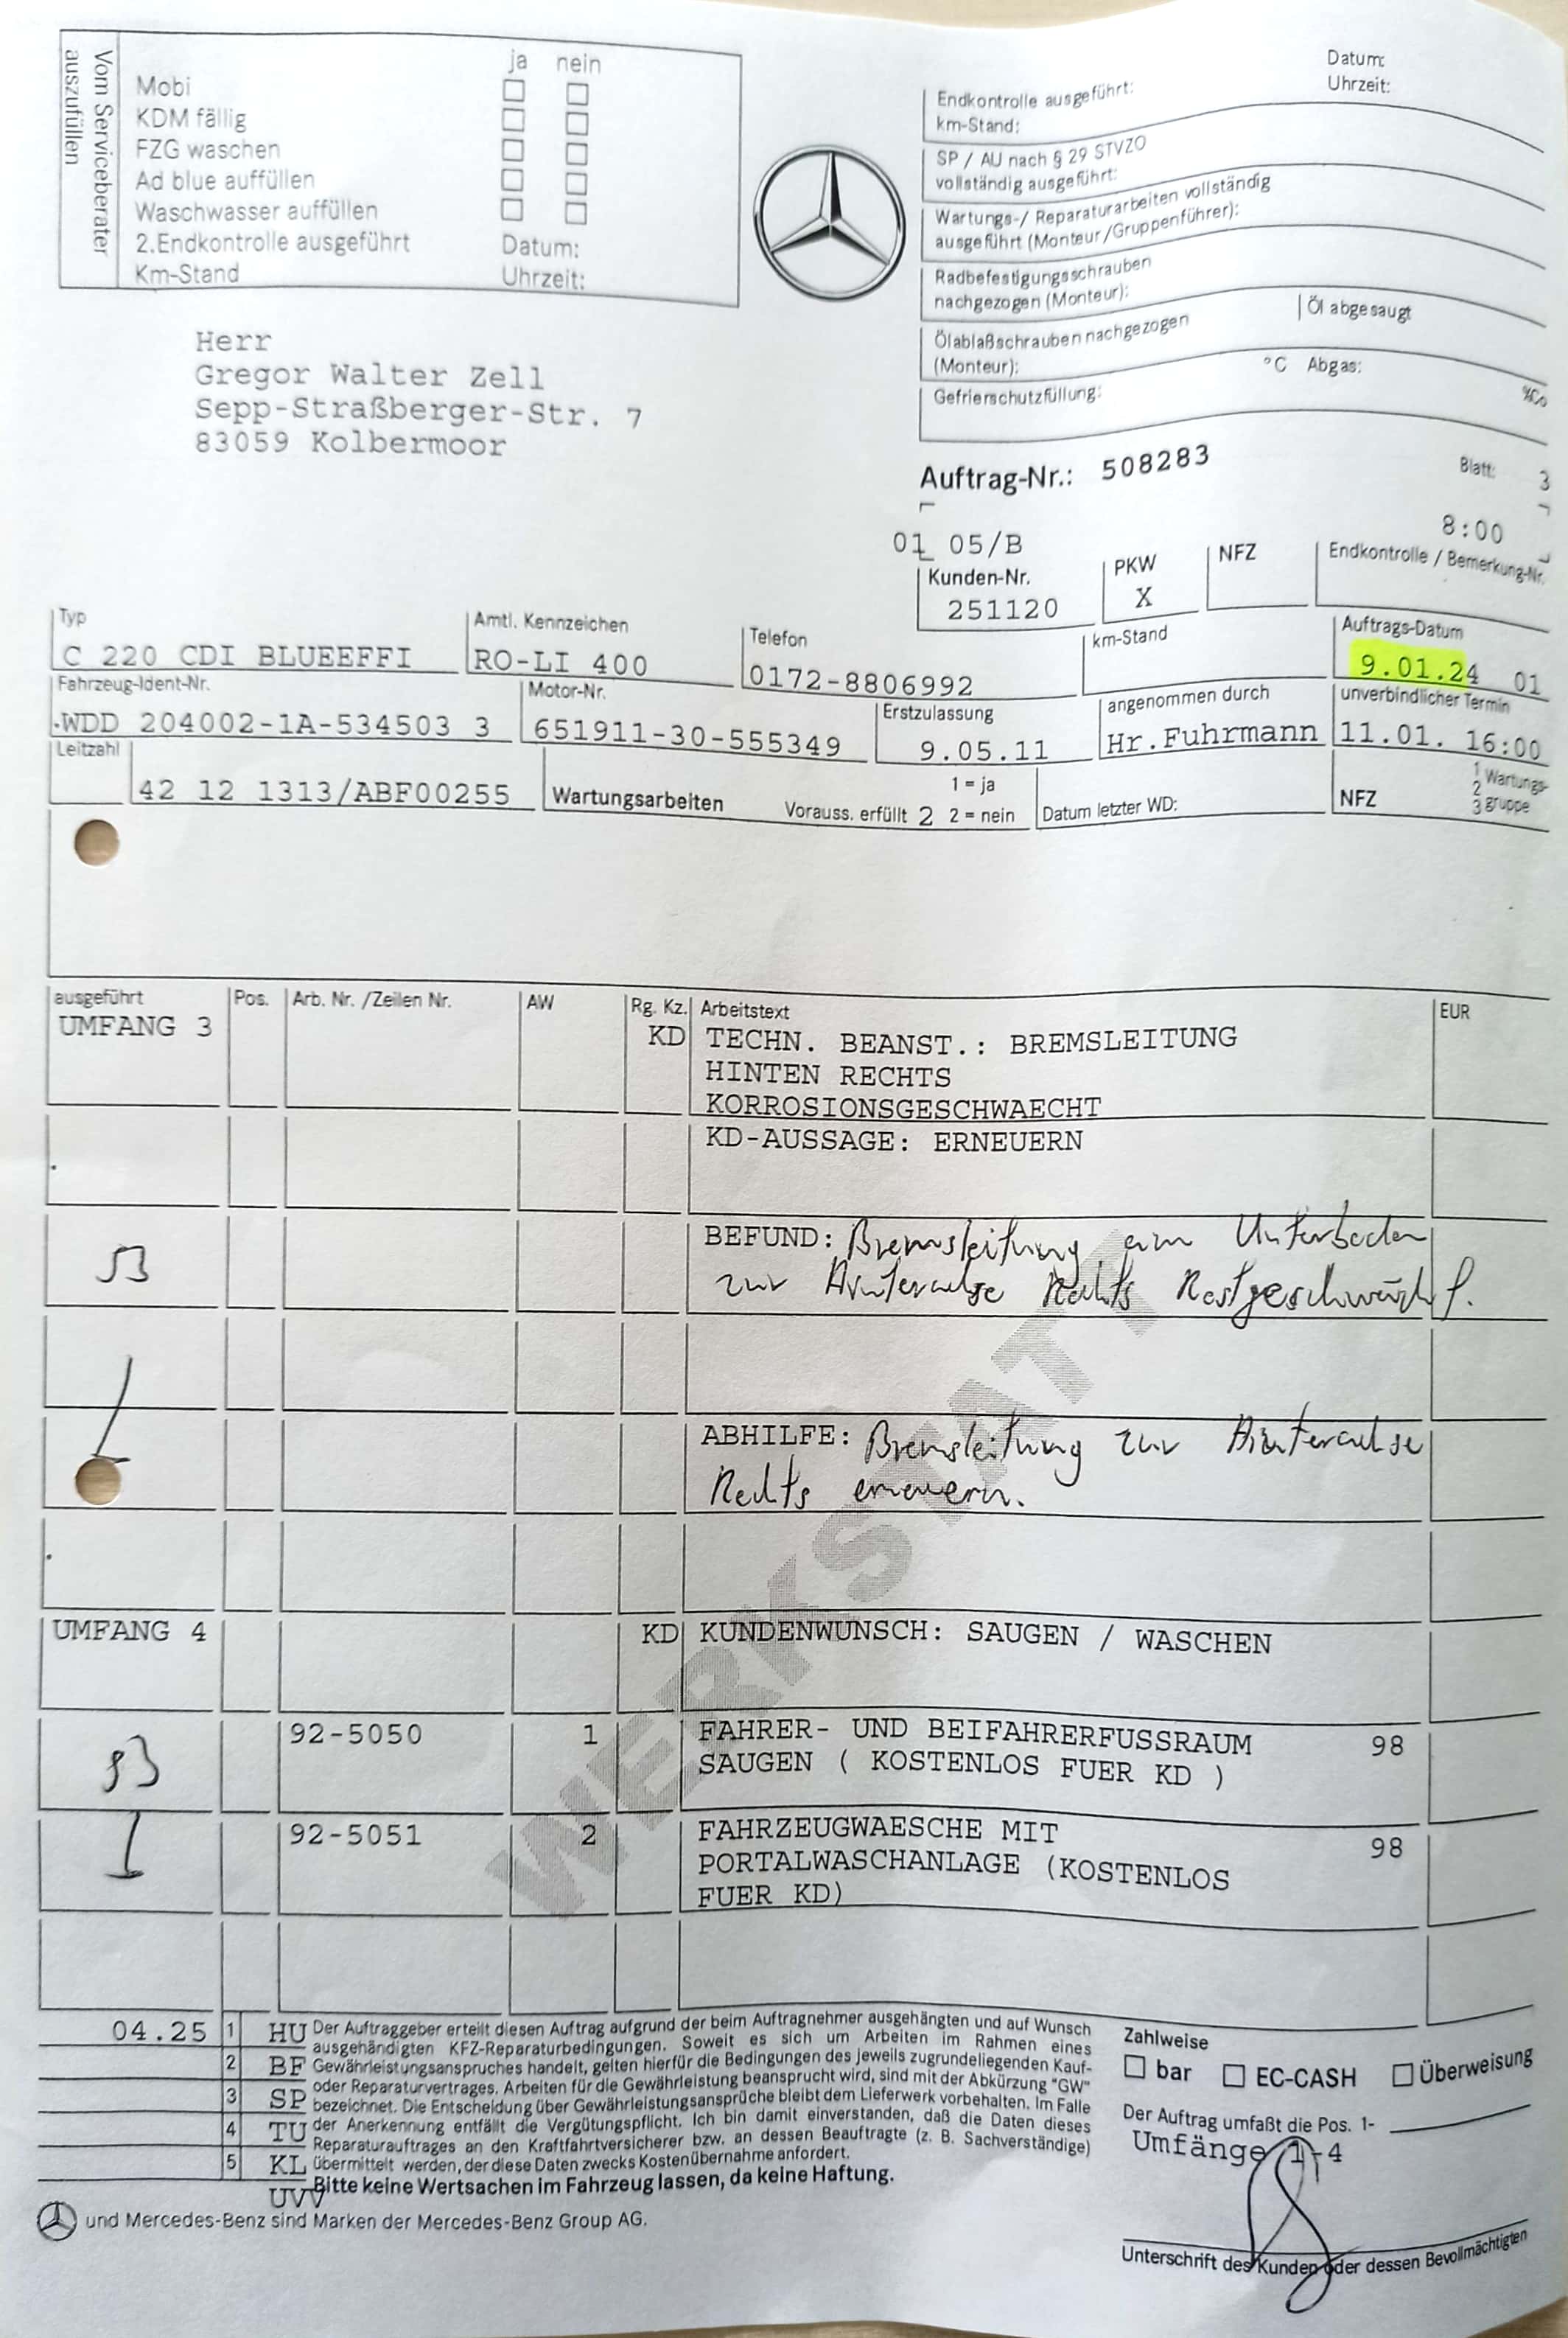 Vom Serviceberater
auszufüllen
ja nein
Mobi
KDM fällig
FZG waschen
Ad blue auffüllen
Waschwasser auffüllen
2.Endkontrolle ausgeführt Datum:
Km-Stand Uhrzeit:
Datum:
Uhrzeit:
Endkontrolle ausgeführt:
km-Stand:
SP / AU nach § 29 STVZO
vollständig ausgeführt:
Wartungs-/ Reparaturarbeiten vollständig
ausgeführt (Monteur/Gruppenführer):
Radbefestigungsschrauben
nachgezogen (Monteur):
Ölablaßschrauben nachgezogen Öl abgesaugt
(Monteur):
°C Abgas:
Gefrierschutzfüllung: %Co
Herr
Gregor Walter Zell
Sepp-Straßberger-Str. 7
83059 Kolbermoor
Auftrag-Nr.: 508283 Blatt: 3
8:00
01 05/B
Kunden-Nr. PKW NFZ Endkontrolle / Bemerkung-Nr.
251120 X
Typ Amtl. Kennzeichen Telefon km-Stand Auftrags-Datum
C 220 CDI BLUEEFFI RO-LI 400 0172-8806992 9.01.24 01
Fahrzeug-Ident-Nr. Motor-Nr. Erstzulassung angenommen durch unverbindlicher Termin
WDD 204002-1A-534503 3 651911-30-555349 9.05.11 Hr.Fuhrmann 11.01. 16:00
Leitzahl
42 12 1313/ABF00255 Wartungsarbeiten Vorauss. erfüllt 2 1 = ja 2 = nein Datum letzter WD: NFZ 1 2 3 Wartungs-gruppe
ausgeführt Pos. Arb. Nr. /Zeilen Nr. AW Rg. Kz. Arbeitstext EUR
UMFANG 3 KD TECHN. BEANST.: BREMSLEITUNG
HINTEN RECHTS
KORROSIONSGESCHWAECHT
KD-AUSSAGE: ERNEUERN
BEFUND: Bremsleitung am Unterboden
zur Hinterachse Rechts Rostgeschwächt.
ABHILFE: Bremsleitung zur Hinterachse
Rechts erneuern.
WERKSTATT
UMFANG 4 KD KUNDENWUNSCH: SAUGEN / WASCHEN
92-5050 1 FAHRER- UND BEIFAHRERFUSSRAUM 98
SAUGEN ( KOSTENLOS FUER KD )
92-5051 2 FAHRZEUGWAESCHE MIT 98
PORTALWASCHANLAGE (KOSTENLOS
FUER KD)
04.25 1 HU
2 BF
3 SP
4 TU
5 KL
UVV
Der Auftraggeber erteilt diesen Auftrag aufgrund der beim Auftragnehmer ausgehängten und auf Wunsch
ausgehändigten KFZ-Reparaturbedingungen. Soweit es sich um Arbeiten im Rahmen eines
Gewährleistungsanspruches handelt, gelten hierfür die Bedingungen des jeweils zugrundeliegenden Kauf-
oder Reparaturvertrages. Arbeiten für die Gewährleistung beansprucht wird, sind mit der Abkürzung "GW"
bezeichnet. Die Entscheidung über Gewährleistungsansprüche bleibt dem Lieferwerk vorbehalten. Im Falle
der Anerkennung entfällt die Vergütungspflicht. Ich bin damit einverstanden, daß die Daten dieses
Reparaturauftrages an den Kraftfahrtversicherer bzw. an dessen Beauftragte (z. B. Sachverständige)
übermittelt werden, der diese Daten zwecks Kostenübernahme anfordert.
Bitte keine Wertsachen im Fahrzeug lassen, da keine Haftung.
Zahlweise
bar EC-CASH Überweisung
Der Auftrag umfaßt die Pos. 1-
Umfänge 1-4
Unterschrift des Kunden oder dessen Bevollmächtigten
und Mercedes-Benz sind Marken der Mercedes-Benz Group AG.